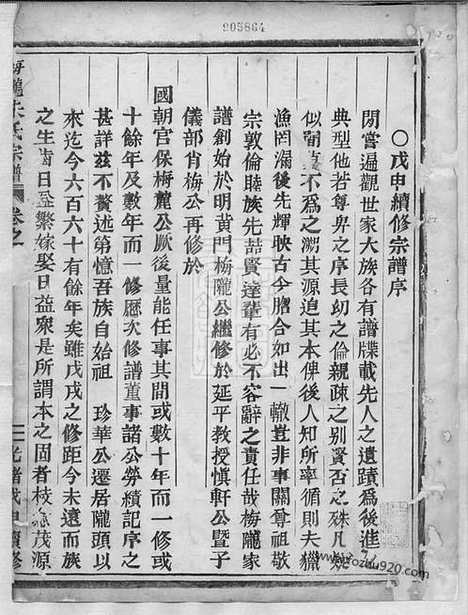 905864
○戊申續修宗譜序
閒嘗遍觀世家大族各有譜牒載先人之遺蹟爲後進之
典型他若尊卑之序長幼之倫親疎之別賢否之殊凡疑
似闇直不爲之溯其源追其本俾後人知所率循則夫獵
漁罔漏後先輝映古今膽合如出一轍豈非事關尊祖敬
宗敦倫睦族先喆賢達輩有必不容辭之責任哉梅隴家
譜創始於明黄門梅隴公繼修於延平教授慎軒公暨子
儀部肖梅公再修於
國朝宫保梅麓公厥後量能任事其間或數十年而一修或
十餘年及數年而一修歷次修譜董事諸公勞績記序之
甚詳兹不贅述第憶吾族自始祖 珍華公遷居隴頭以
來迄今六百六十有餘年矣雖戊戌之修距今未遠而族
之生齒日益繁嫁娶日益衆是所謂本之固者枝茂源
梅隴氏宗譜
卷之
一
光緒戊申續修
www.fozhu920.com